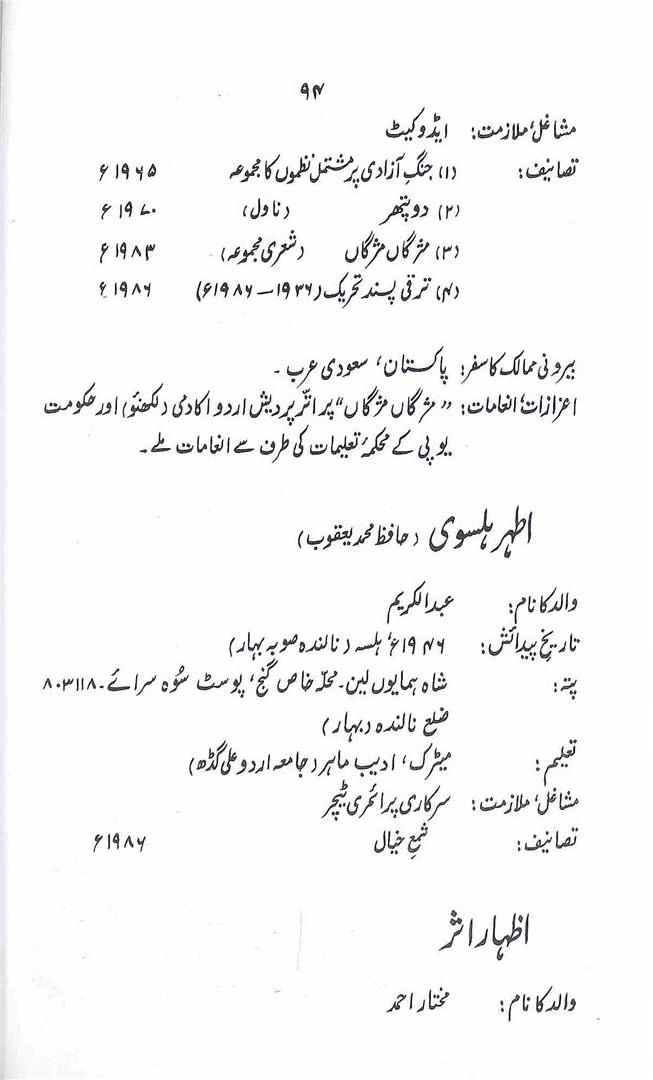 ۹۴
مشاغل؍ملازمت: ایڈوکیٹ
تصانیف: (۱) جنگِ آزادی پر مشتمل نظموں کا مجموعہ ۱۹۶۵ء
(۲) دو پتھر (ناول) ۱۹۷۰ء
(۳) مژگاں مژگاں (شعری مجموعہ) ۱۹۸۳ء
(۴) ترقی پسند تحریک (۱۹۳۶ – ۱۹۸۶ء) ۱۹۸۶ء
بیرونی ممالک کا سفر: پاکستان، سعودی عرب۔
اعزازات؍انعامات: "مژگاں مژگاں" پر اترّ پردیش اردو اکادمی (لکھنؤ) اور حکومت
یو پی کے محکمۂ تعلیمات کی طرف سے انعامات ملے۔
اطہر ہلسوی (حافظ محمد یعقوب)
والد کا نام: عبدالکریم
تاریخ پیدائش: ۱۹۴۶ء، ہلسہ (نالندہ صوبہ بہار)
پتہ: شاہ ہمایوں لین۔ محلہ خاص گنج، پوسٹ سُوہ سرائے۔ ۸۰۳۱۱۸
ضلع نالندہ (بہار)
تعلیم: میٹرک، ادیب ماہر (جامعہ اردو علی گڈھ)
مشاغل؍ملازمت: سرکاری پرائمری ٹیچر
تصانیف: شمعِ خیال ۱۹۸۶ء
اظہار اثر
والد کا نام: مختار احمد